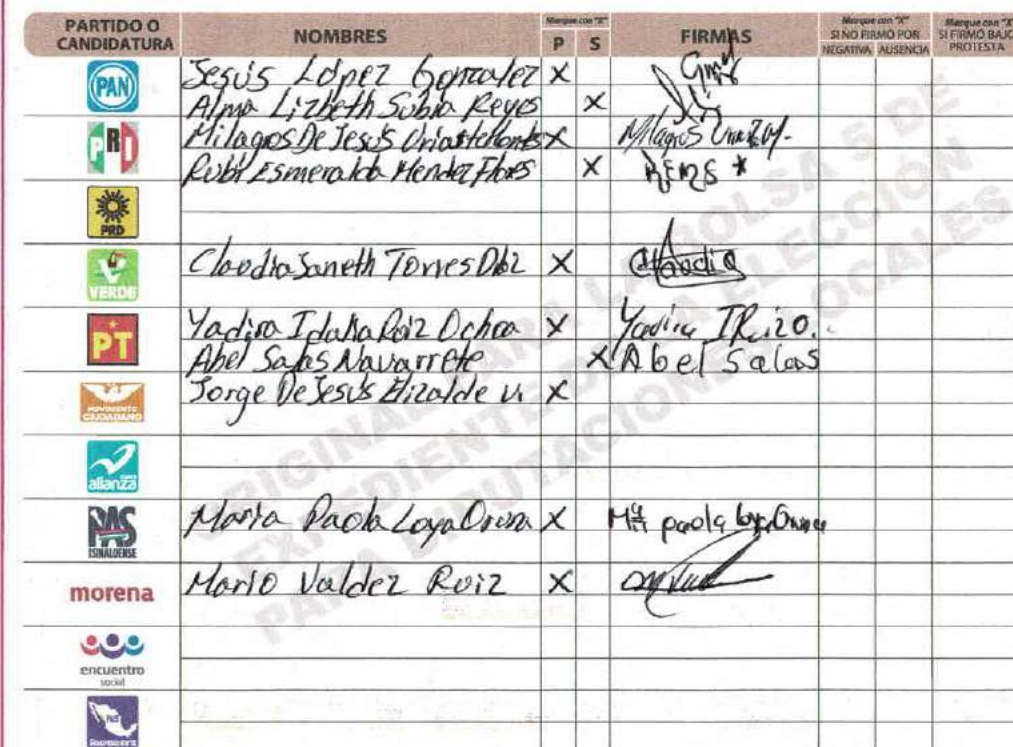 PARTIDO O CANDIDATURA NOMBRES Marque con "X" P S FIRMAS Marque con "X" SI NO FIRMÓ POR NEGATIVA AUSENCIA Marque con "X" SI FIRMÓ BAJO PROTESTA
PAN Jesús López Gonzalez X
Alma Lizbeth Subia Reyes X
PRI Milagros De Jesús X Milagros
Rubí Esmeralda Mendez Flores X
PRD
VERDE Claudia Janeth Torres X Claudia
PT Yadira Ruiz Ochoa X Yadira
Abel Salas Navarrete X Abel Salas
MOVIMIENTO CIUDADANO Jorge De Jesús Elizalde V. X
alianza
PAS SINALOENSE Maria Paola Loya X Ma paola
morena Mario Valdez Ruiz X
encuentro social
ORIGINAL PARA LA BOLSA 5 DE
EXPEDIENTE DE LA ELECCIÓN
PARA DIPUTACIONES LOCALES